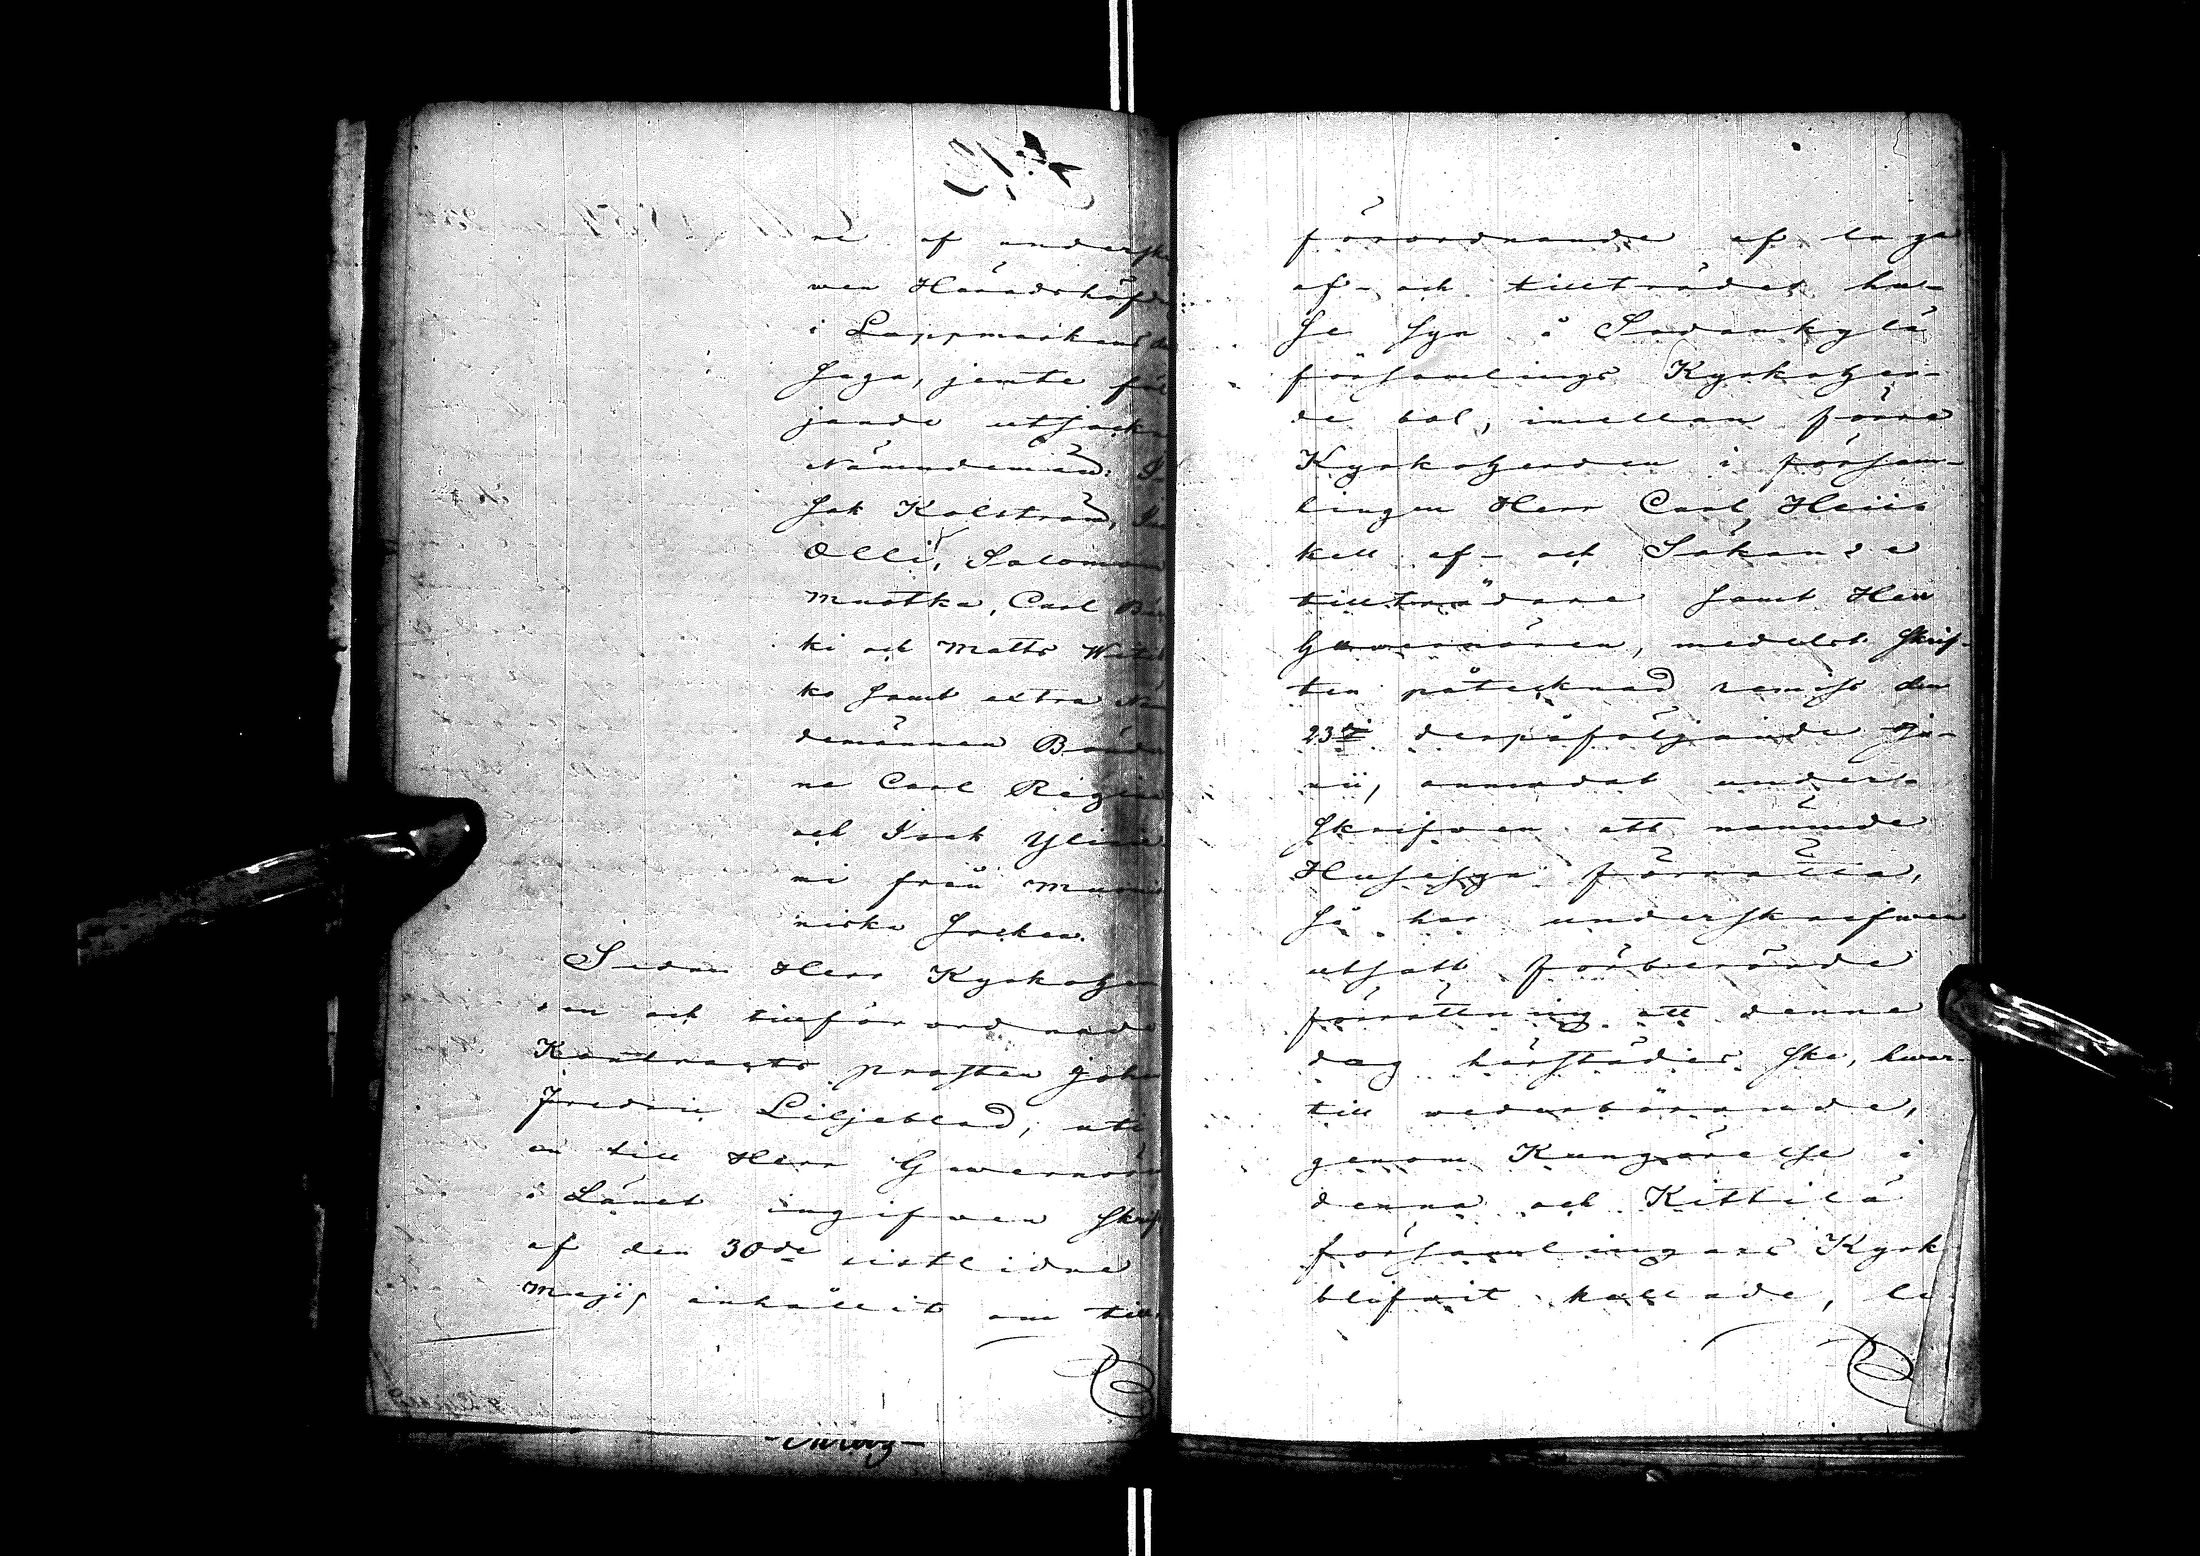 re af underskr
wen Häradshöfd
i Lappmarkens
saga, jemte föl
jande utsockn
Nämndemän: I-
sak Kolström,
Olli, Salomon
Muotka, Carl
ki och Matts
ko samt extra Nä
demännen Bönder
ne Carl
och Isak Ylinie
mi från Muo
niska socken.
Sedan Herr Kyrkoher
den och tillförordnade
Kontrakts prosten Joha
Fredric Liljeblad, uti
en till Herr Gouvernör
i Länet ingifven skrif
af den 30de sistlidne
Maji, anhållit om till
förordnande af laga
af- och tillträdes hu-
se syn å Sodankylä
församlings Kyrkoher-
de bol, imellan förre
Kyrkoherden i försam-
lingen Herr Carl Heiis
kell af- och Sökande
tillträdare samt Herr
Gouvernören, medelst skrif-
ten påtecknad remiss den
23de derpåföljande Ju-
nii, anmodat under-
skrifven att nämnde
Husesyn förrätta,
så har underskrifwen
utsatt förberörde
förrättning att denne
dag härstädes ske, hwar-
till wederbörande,
genom Kungörelse i
denna och Kittilä
församlingars Kyrk
blifwit kallade,